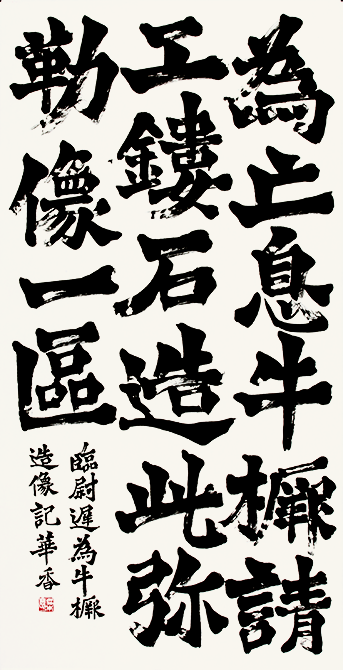 為亡息牛橛請
工鏤石造此弥
勒像一區
臨尉遲為牛橛
造像記華香